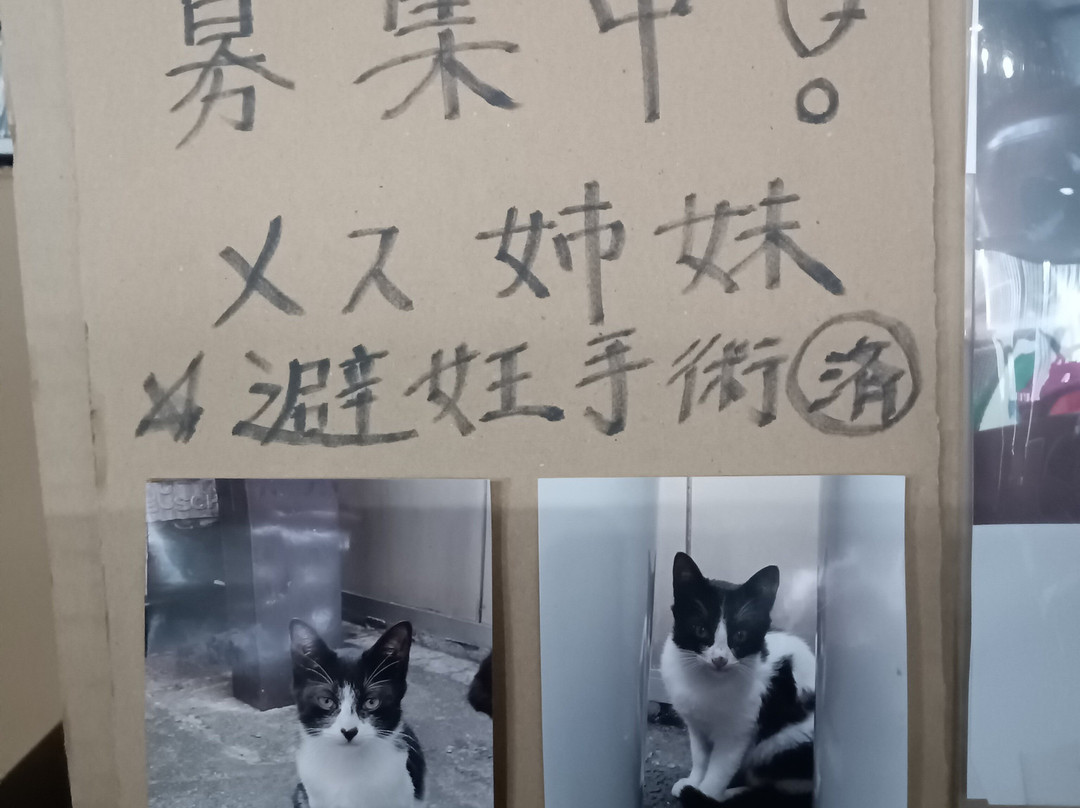 募集中!
メス姉妹
※避妊手術済